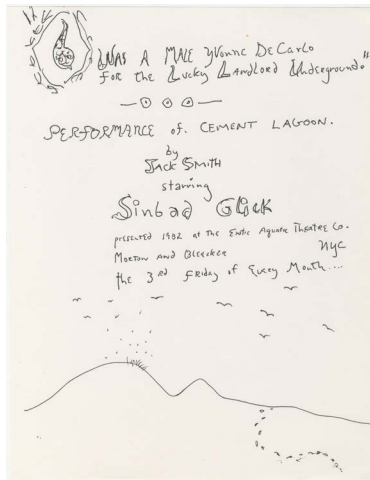 I Was A Male Yvonne DeCarlo
for the Lucky Landlord Underground."
PERFORMANCE of. CEMENT LAGOON.
by
JACK SMITH
starring
Sinbad Glick
presented 1982 at the Exotic Aquatic Theatre Co.
Morton and Bleecker NYC
the 3rd FRIDAY of Every Month....